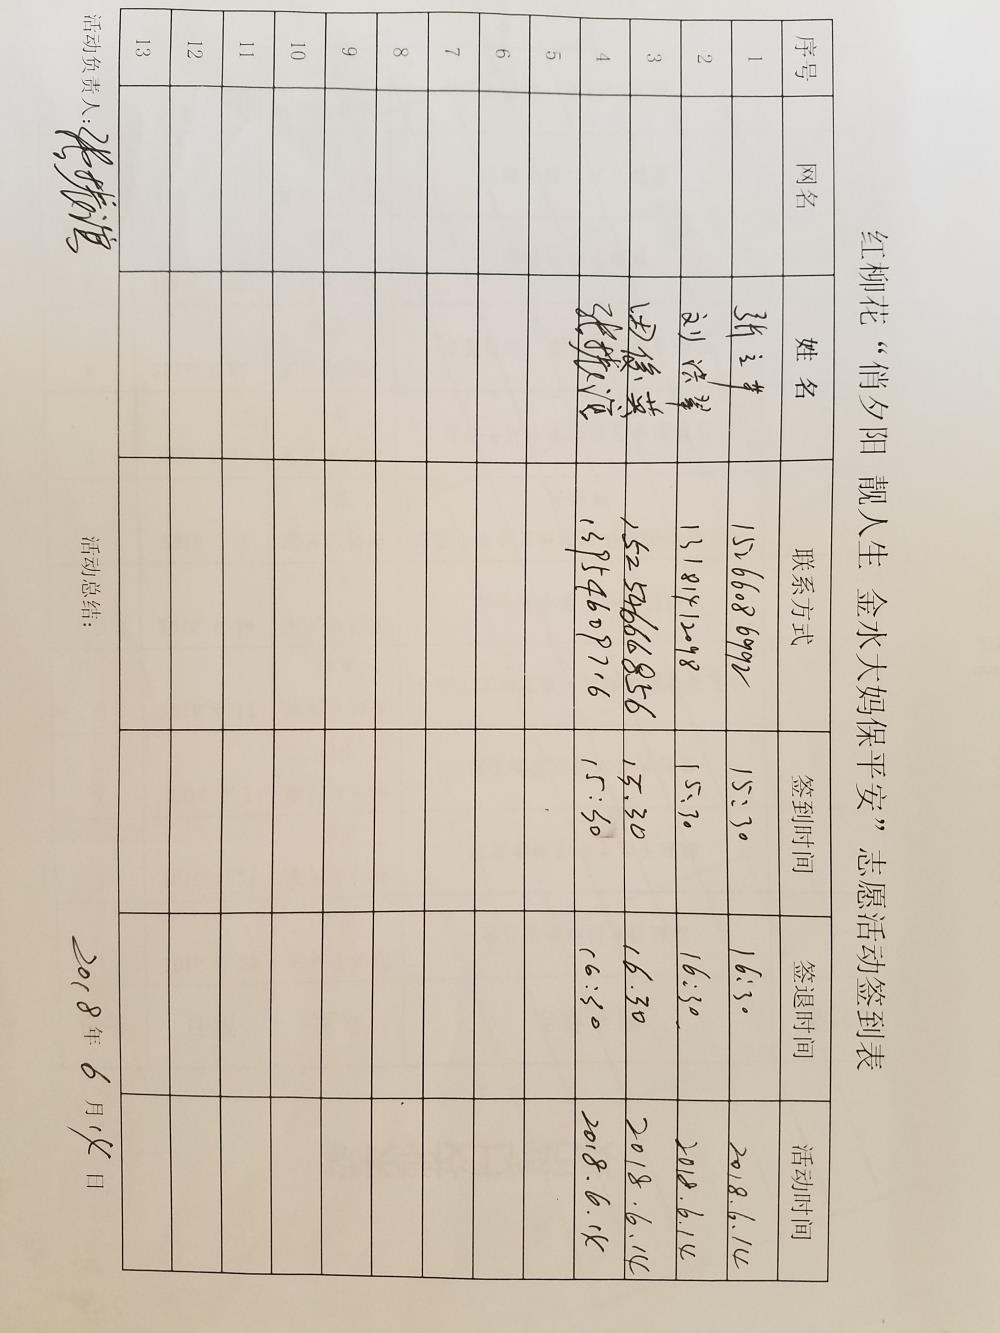 红柳花“俏夕阳 靓人生 金水大妈保平安”志愿活动签到表
序号 网名 姓名 联系方式 签到时间 签退时间 活动时间
1 15266086992 15:30 16:30 2018.6.14
2 刘洪翠 13181412098 15:30 16:30 2018.6.14
3 田俊英 15254666856 15:30 16:30 2018.6.14
4 张振滨 13954609716 15:30 16:30 2018.6.14
5
6
7
8
9
10
11
12
13
活动负责人:张振滨 活动总结: 2018年6月14日